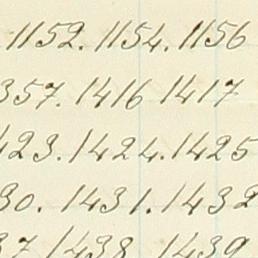 1152. 1154. 1156
357. 1416 1417
423. 1424. 1425
30. 1431. 1432
37. 1438. 1439